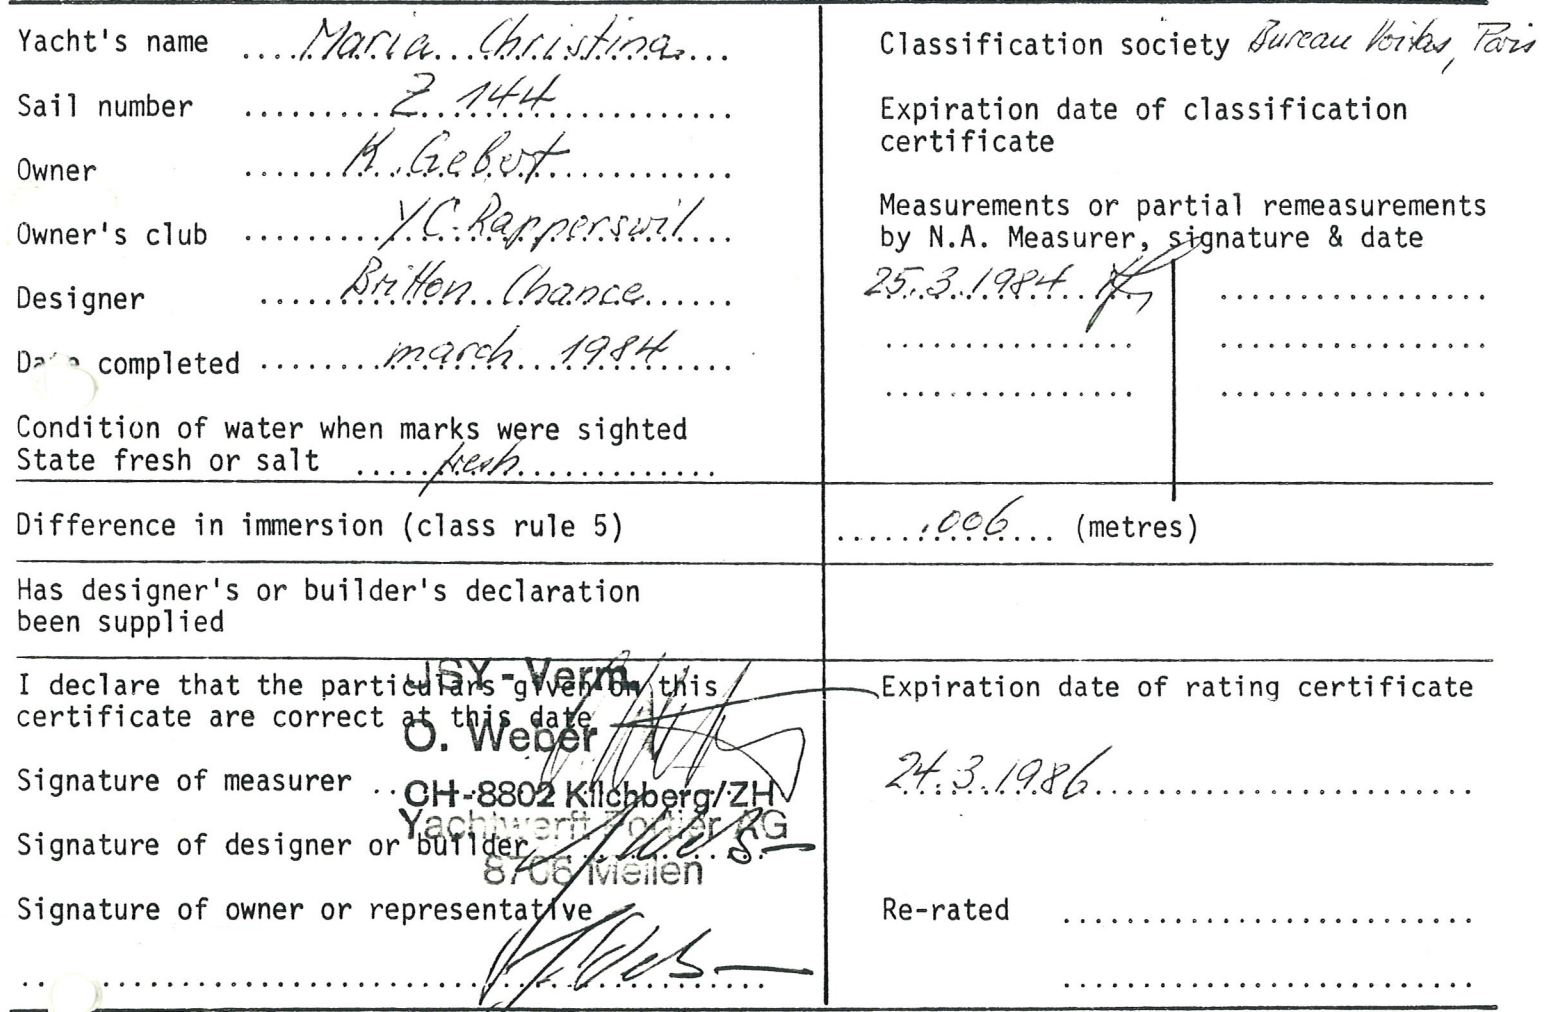 Yacht's name ....Maria Christina...
Sail number Z 144
Owner K. Gebert
Owner's club YC. Rapperswil
Designer Britton Chance
Date completed march 1984
Condition of water when marks were sighted
State fresh or salt fresh
Classification society Bureau Veritas, Paris
Expiration date of classification
certificate
Measurements or partial remeasurements
by N.A. Measurer, signature & date
25.3.1984
Difference in immersion (class rule 5) .006 (metres)
Has designer's or builder's declaration
been supplied
I declare that the particulars given on this
certificate are correct at this date
USY-Verm.
O. Weber
CH-8802 Kilchberg/ZH
Signature of measurer
Yachtwerft Portier AG
8706 Meilen
Signature of designer or builder
Signature of owner or representative
Expiration date of rating certificate
24.3.1986
Re-rated